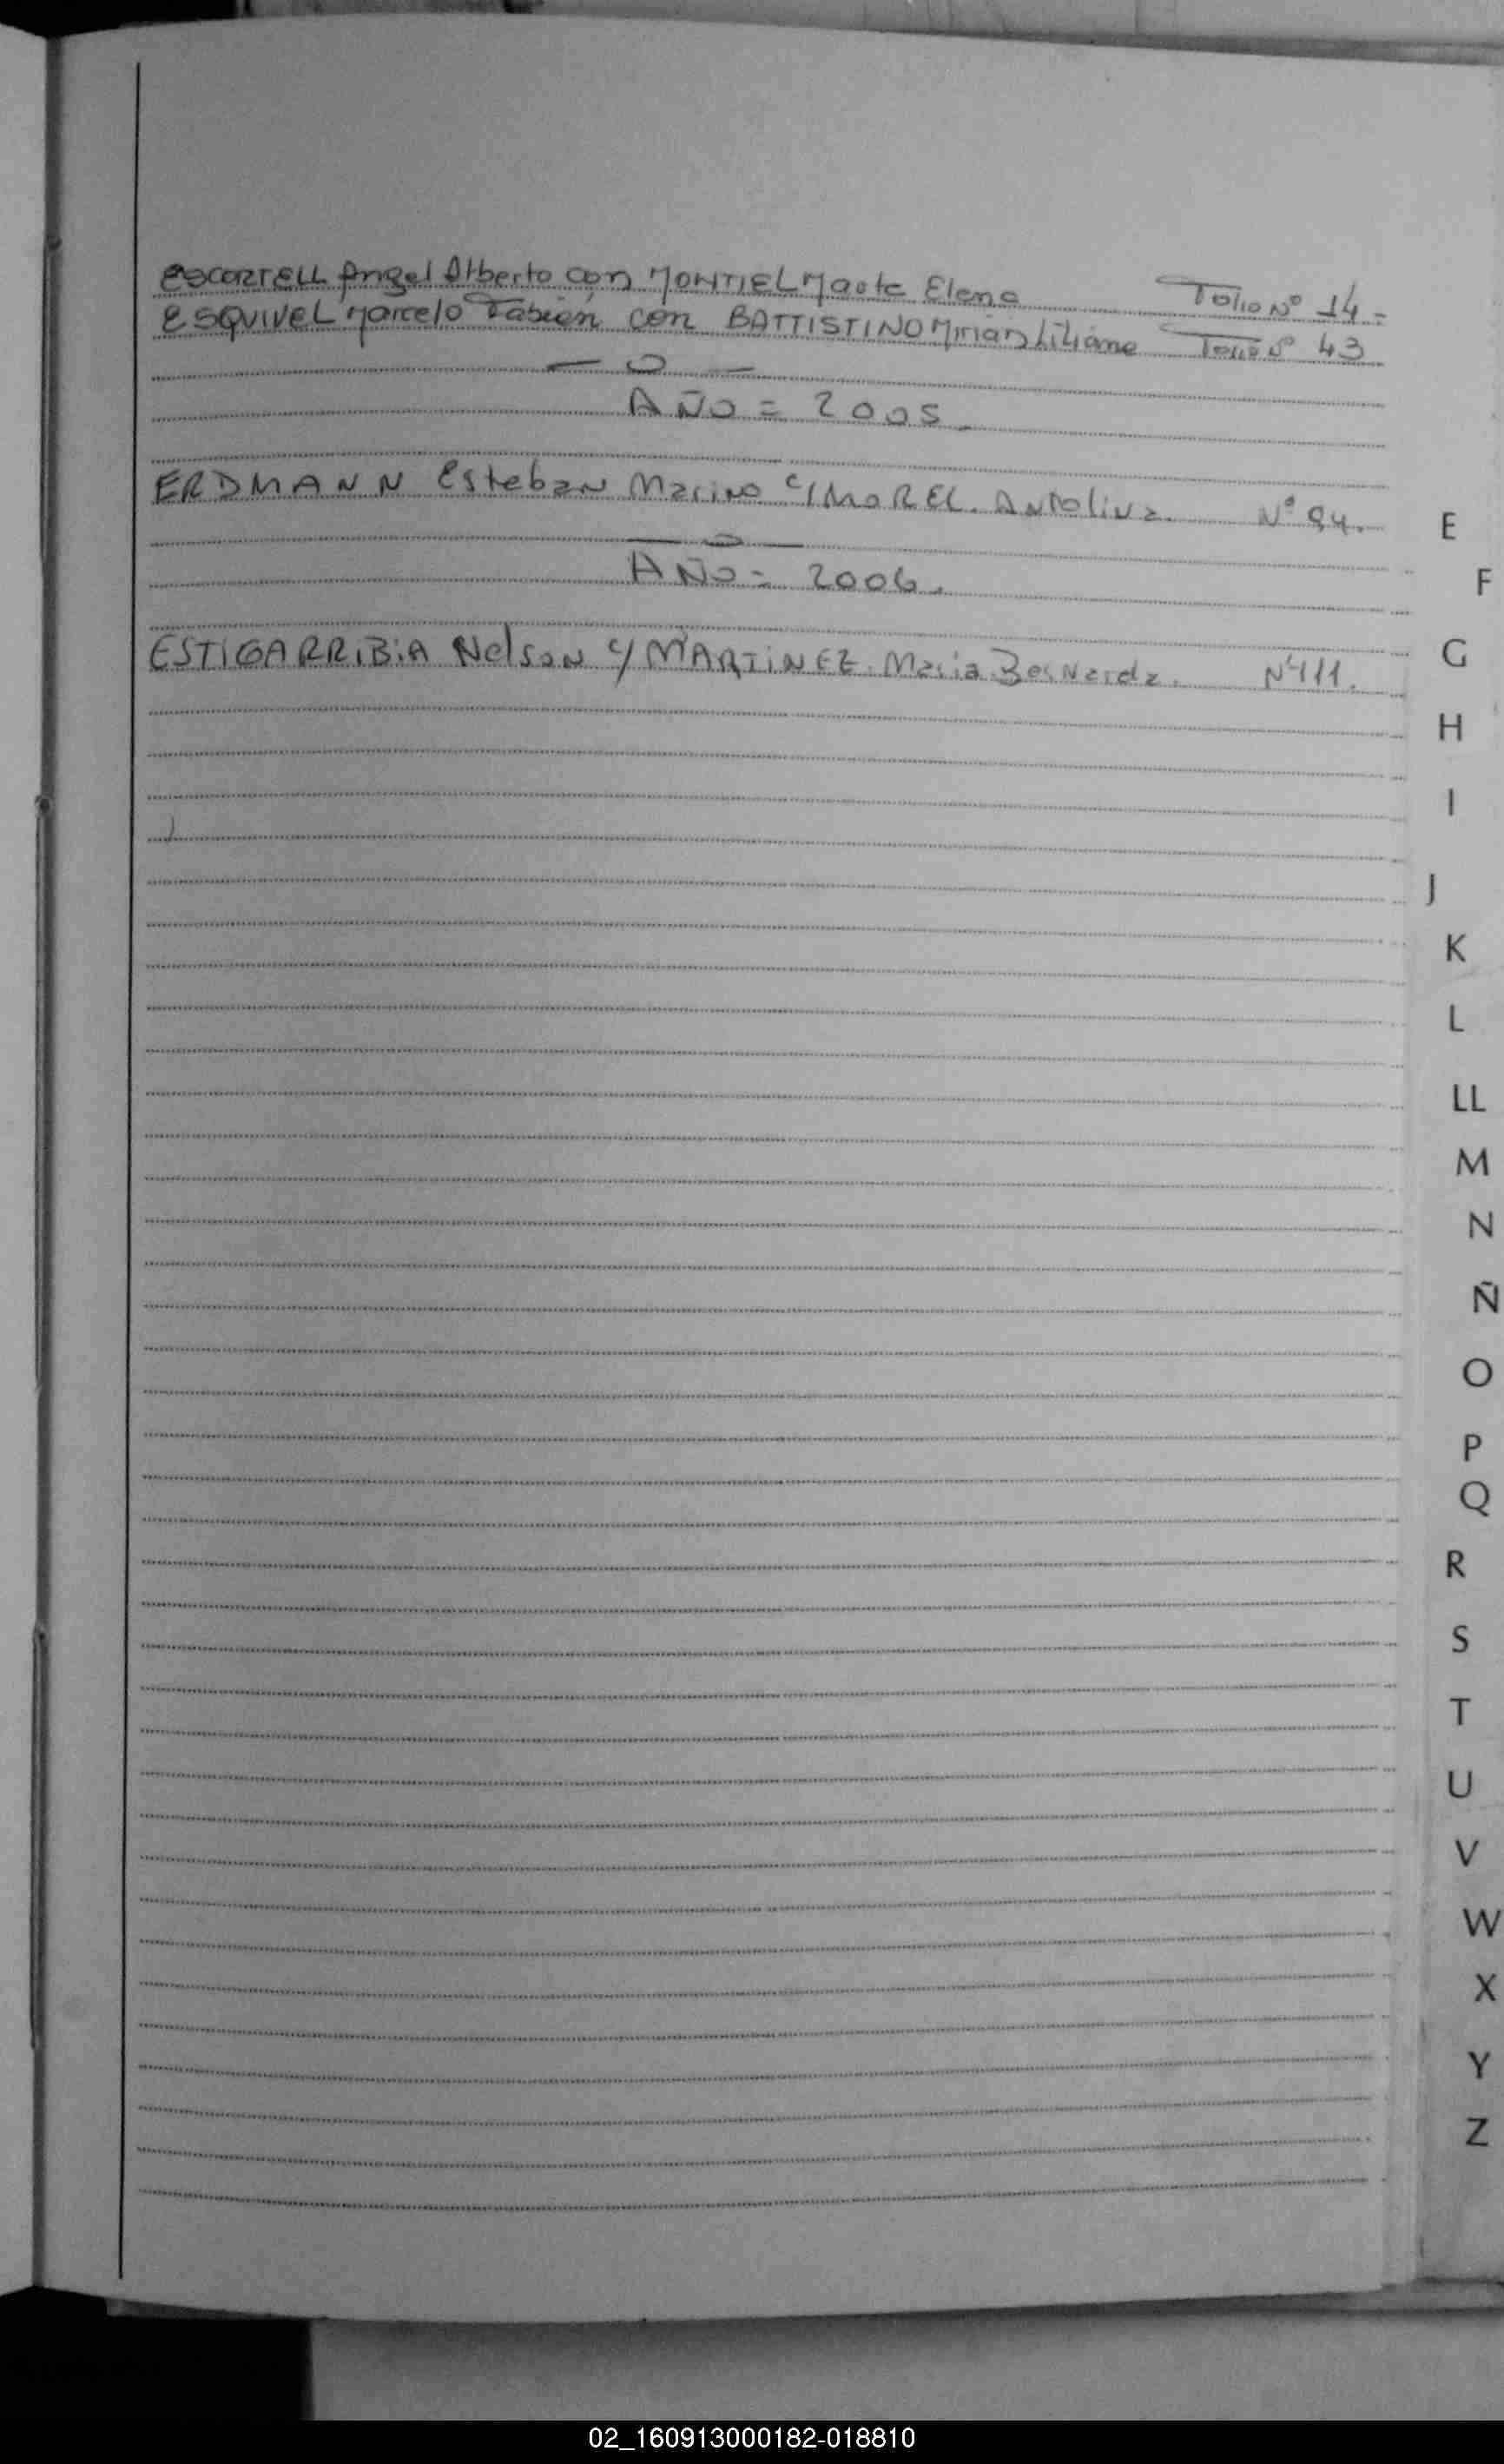 ESCORTELL Angel Alberto con MONTIEL Marta Elena Folio Nº 14=
ESQUIVEL Marcelo Fabián con BATTISTINO Mirian Liliana Folio Nº 43
— o —
AÑO = 2005.
ERDMANN Esteban Marino c/ MOREL. Antolina. Nº 94.
— o —
AÑO = 2006.
ESTIGARRIBIA Nelson c/ MARTINEZ. Maria Bernarda. Nº 111.
E
F
G
H
I
J
K
L
LL
M
N
Ñ
O
P
Q
R
S
T
U
V
W
X
Y
Z
02_160913000182-018810